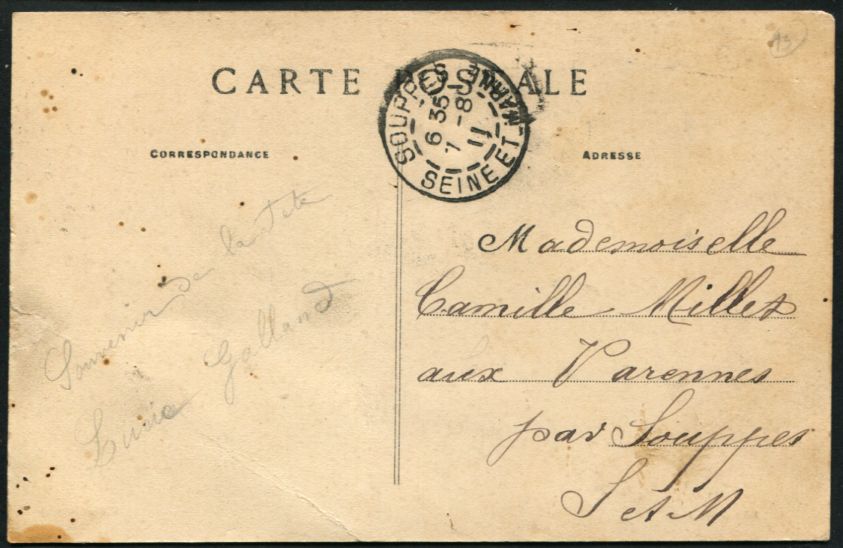 CARTE POSTALE
SOUPPES SEINE-ET-MARNE
6 35
7 -8
11
CORRESPONDANCE
ADRESSE
Souvenir de la fete
Lucie Galland
Mademoiselle
Camille Millet
aux Varennes
par Souppes
S et M
13